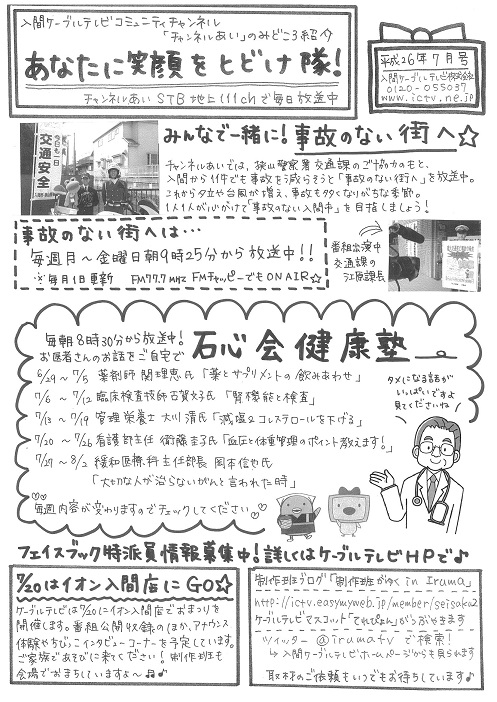 入間ケーブルテレビコミュニティチャンネル
「チャンネルあい」のみどころ紹介
あなたに笑顔をとどけ隊!
チャンネルあい STB 地上111chで毎日放送中
平成26年7月号
入間ケーブルテレビ株式会社
0120-055037
www.ictv.ne.jp
今日も一日
交通安全
みんなで一緒に!事故のない街へ☆
チャンネルあいでは、狭山警察署交通課のご協力のもと、
入間から1件でも事故を減らそうと「事故のない街へ」を放送中。
これから夕立や台風が増え、事故も多くなりがちな季節。
1人1人が心がけて「事故のない入間市」を目指しましょう!
事故のない街へは…
毎週月~金曜日朝9時25分から放送中!!
※毎月1日更新 FM77.7MHz FMチャッピーでもON AIR☆
番組出演中
交通課の
江原課長
毎朝8時30分から放送中!
お医者さんのお話をご自宅で
石心会健康塾
6/29~7/5 薬剤師 関理恵氏「薬とサプリメントの飲みあわせ」
7/6~7/12 臨床検査技師 古賀文子氏「腎機能と検査」
7/13~7/19 管理栄養士 大川清氏「減塩&コレステロールを下げる」
7/20~7/26 看護部主任 衛藤圭子氏「血圧と体重管理のポイント教えます!」
7/27~8/2 緩和医療科主任部長 岡本信也氏
「大切な人が治らないがんと言われた時」
毎週内容が変わりますのでチェックしてください
タメになる話が
いっぱいですよ
見てくださいね!
フェイスブック特派員情報募集中!詳しくはケーブルテレビHPで♪
7/20はイオン入間店にGO☆
ケーブルテレビは7/20にイオン入間店でおまつりを
開催します。番組公開収録のほか、アナウンス
体験やちびっこインタビューコーナーを予定しています。
ご家族であそびに来てください!制作班も
会場でおまちしていますよ~♫♪
制作班ブログ「制作班がゆく in Iruma」
http://ictv.easymyweb.jp/member/seisaku2
ケーブルテレビマスコット「てれぴょん」がつぶやきます
ツイッター @irumatv で検索!
↳入間ケーブルテレビホームページからも見られます
取材のご依頼もいつでもお待ちしています♪